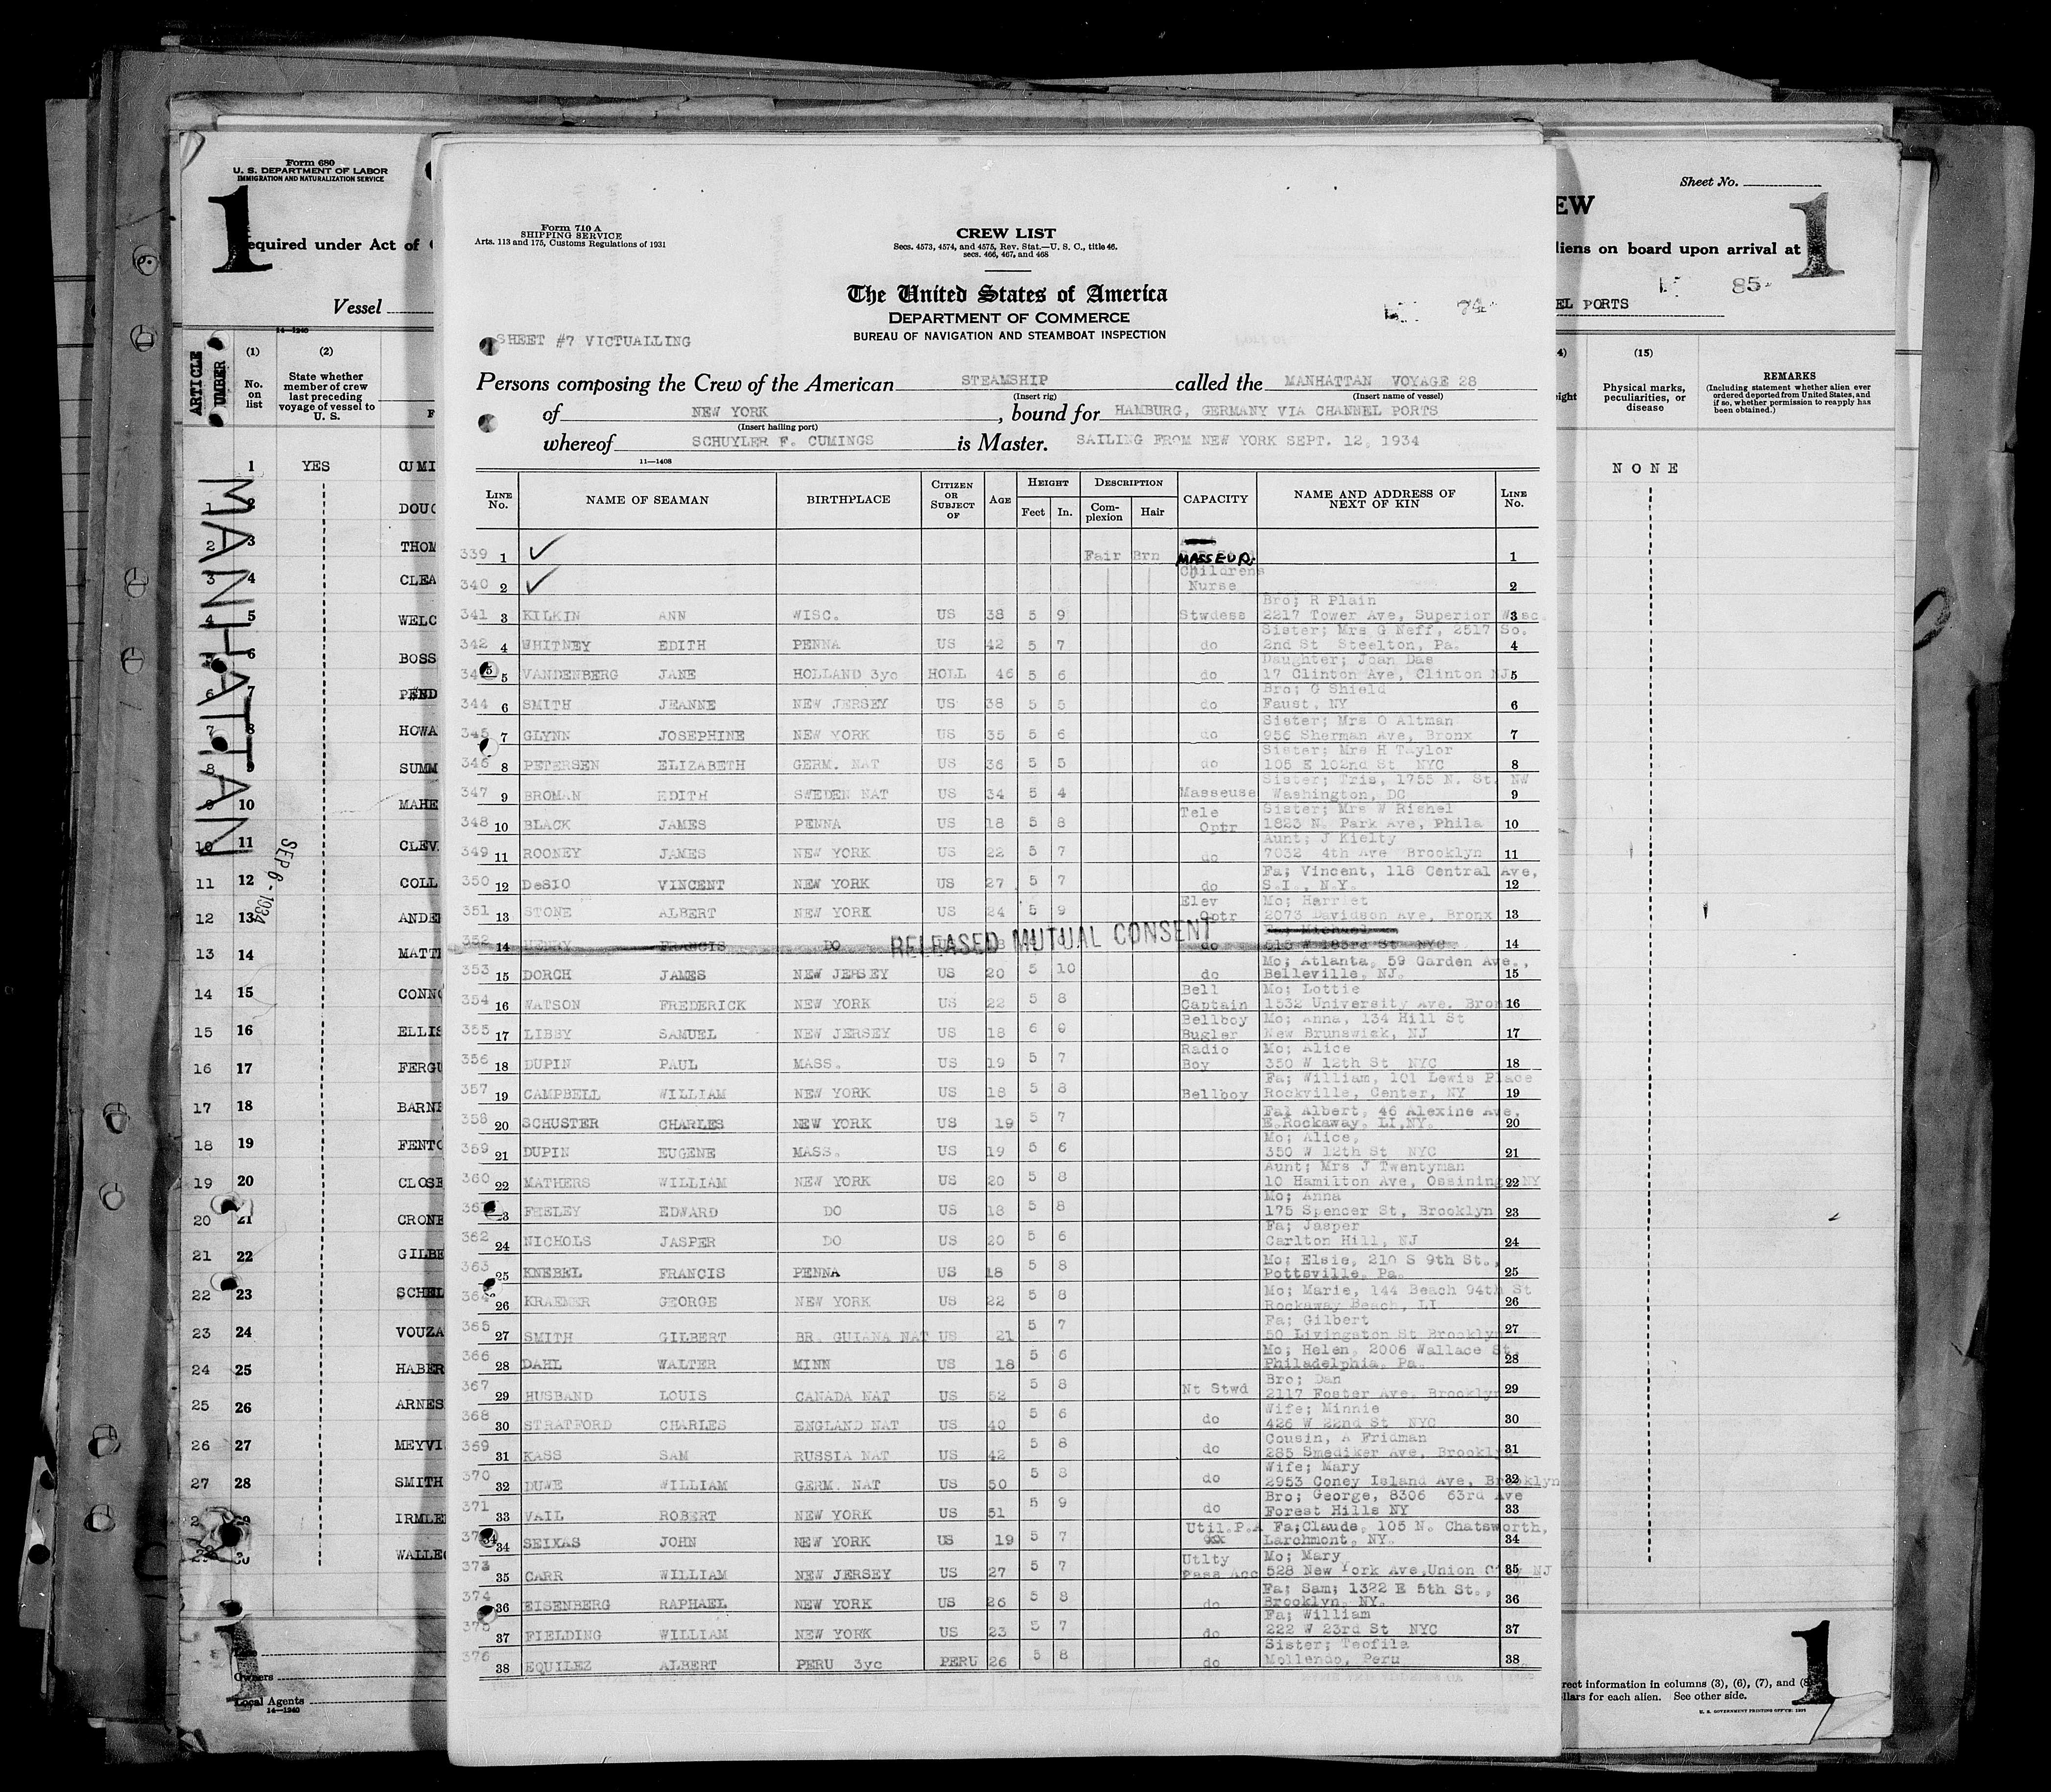 Form 680
U. S. DEPARTMENT OF LABOR
IMMIGRATION AND NATURALIZATION SERVICE
1
equired under Act of
Vessel
14—1240
ARTICLE
UMBER
(1)
No.
on
list
(2)
State whether
member of crew
last preceding
voyage of vessel to
U. S.
F
MANHATTAN
SEP 6 - 1934
1 YES CUMI
DOUG
2 3 THOM
3 4 CLEA
4 5 WELC
6 BOSS
6 7 PEND
7 8 HOWA
8 SUMM
9 10 MAHE
10 11 CLEV
11 12 COLL
12 13 ANDE
13 14 MATT
14 15 CONN
15 16 ELLIS
16 17 FERGU
17 18 BARNE
18 19 FENTO
19 20 CLOSE
20 21 CRONE
21 22 GILBE
22 23 SCHEL
23 24 VOUZA
24 25 HABER
25 26 ARNES
26 27 MEYVI
27 28 SMITH
IRMLE
WALLE
1
Owners
Local Agents
14—1240
Form 710 A
SHIPPING SERVICE
Arts. 113 and 175, Customs Regulations of 1931
CREW LIST
Secs. 4573, 4574, and 4575, Rev. Stat.—U. S. C., title 46.
secs. 466, 467, and 468
The United States of America
DEPARTMENT OF COMMERCE
BUREAU OF NAVIGATION AND STEAMBOAT INSPECTION
74
SHEET #7 VICTUALLING
Persons composing the Crew of the American STEAMSHIP called the MANHATTAN VOYAGE 28
(Insert rig) (Insert name of vessel)
of NEW YORK, bound for HAMBURG, GERMANY VIA CHANNEL PORTS
(Insert hailing port)
whereof SCHUYLER F. CUMINGS is Master. SAILING FROM NEW YORK SEPT. 12, 1934
11—1408
LINE No. NAME OF SEAMAN BIRTHPLACE CITIZEN OR SUBJECT OF AGE HEIGHT Feet In. DESCRIPTION Complexion Hair CAPACITY NAME AND ADDRESS OF NEXT OF KIN LINE No.
339 1 Fair Brn MASSEUR 1
340 2 Childrens Nurse 2
341 3 KILKIN ANN WISC. US 38 5 9 Stwdess Bro; R Plain 2217 Tower Ave, Superior Wisc. 3
342 4 WHITNEY EDITH PENNA US 42 5 7 do Sister; Mrs G Neff, 2517 So. 2nd St Steelton, Pa. 4
5 VANDENBERG JANE HOLLAND 3yc HOLL 46 5 6 do Daughter; Joan Das 17 Clinton Ave, Clinton NJ 5
344 6 SMITH JEANNE NEW JERSEY US 38 5 5 do Bro; G Shield Faust, NY 6
345 7 GLYNN JOSEPHINE NEW YORK US 35 5 6 do Sister; Mrs O Altman 956 Sherman Ave, Bronx 7
346 8 PETERSEN ELIZABETH GERM. NAT US 36 5 5 do Sister; Mrs H Taylor 105 E 102nd St NYC 8
347 9 BROMAN EDITH SWEDEN NAT US 34 5 4 Masseuse Sister; Tris, 1755 N. St. NW Washington, DC 9
348 10 BLACK JAMES PENNA US 18 5 8 Tele Optr Sister; Mrs W Rishel 1823 N. Park Ave, Phila 10
349 11 ROONEY JAMES NEW YORK US 22 5 7 do Aunt; J Kielty 7032 4th Ave Brooklyn 11
350 12 DeSIO VINCENT NEW YORK US 27 5 7 do Fa; Vincent, 118 Central Ave, S.I., N.Y. 12
351 13 STONE ALBERT NEW YORK US 24 5 9 Elev Optr Mo; Harriet 2073 Davidson Ave, Bronx 13
352 14 HENRY FRANCIS DO RELEASED MUTUAL CONSENT do Michael 515 W 183rd St NYC 14
353 15 DORCH JAMES NEW JERSEY US 20 5 10 do Mo; Atlanta, 59 Garden Ave., Belleville, NJ. 15
354 16 WATSON FREDERICK NEW YORK US 22 5 8 Bell Captain Mo; Lottie 1532 University Ave. Bron 16
355 17 LIBBY SAMUEL NEW JERSEY US 18 6 0 Bellboy Bugler Mo; Anna, 134 Hill St New Brunswick, NJ 17
356 18 DUPIN PAUL MASS. US 19 5 7 Radio Boy Mo; Alice 350 W 12th St NYC 18
357 19 CAMPBELL WILLIAM NEW YORK US 18 5 8 Bellboy Fa; William, 101 Lewis Place Rockville, Center, NY 19
358 20 SCHUSTER CHARLES NEW YORK US 19 5 7 Fal Albert, 46 Alexine Ave, E.Rockaway. LI,NY. 20
359 21 DUPIN EUGENE MASS. US 19 5 6 Mo; Alice, 350 W 12th St NYC 21
360 22 MATHERS WILLIAM NEW YORK US 20 5 8 Aunt; Mrs J Twentyman 10 Hamilton Ave, Ossining NY 22
FEELEY EDWARD DO US 18 5 8 Mo; Anna 175 Spencer St, Brooklyn 23
362 24 NICHOLS JASPER DO US 20 5 6 Fa; Jasper Carlton Hill, NJ 24
363 25 KNEBEL FRANCIS PENNA US 18 5 8 Mo; Elsie, 210 S 9th St., Pottsville, Pa. 25
364 26 KRAEMER GEORGE NEW YORK US 22 5 8 Mo; Marie, 144 Beach 94th St Rockaway Beach, LI 26
365 27 SMITH GILBERT BR. GUIANA NAT US 21 5 7 Fa; Gilbert 50 Livingston St Brooklyn 27
366 28 DAHL WALTER MINN US 18 5 6 Mo; Helen, 2006 Wallace St. Philadelphia, Pa. 28
367 29 HUSBAND LOUIS CANADA NAT US 52 5 8 Nt Stwd Bro; Dan 2117 Foster Ave. Brooklyn 29
368 30 STRATFORD CHARLES ENGLAND NAT US 40 5 6 do Wife; Minnie 426 W 22nd St NYC 30
369 31 KASS SAM RUSSIA NAT US 42 5 8 do Cousin, A Fridman 285 Smediker Ave, Brookly 31
370 32 DUWE WILLIAM GERM. NAT US 50 5 8 do Wife; Mary 2953 Coney Island Ave, Brooklyn 32
371 33 VAIL ROBERT NEW YORK US 51 5 9 do Bro; George, 8306 63rd Ave Forest Hills NY 33
34 SEIXAS JOHN NEW YORK US 19 5 7 Util.P.A Fa;Claude, 105 N. Chatsworth, Larchmont, NY. 34
373 35 CARR WILLIAM NEW JERSEY US 27 5 7 Utlty Pass Acc Mo; Mary 528 New York Ave,Union City NJ 35
374 36 EISENBERG RAPHAEL NEW YORK US 26 5 8 do Fa; Sam; 1322 E 5th St., Brooklyn, NY. 36
375 37 FIELDING WILLIAM NEW YORK US 23 5 7 do Fa; William 222 W 23rd St NYC 37
376 38 EQUILEZ ALBERT PERU 3yc PERU 26 5 8 do Sister; Teofila Mollendo, Peru 38
Sheet No.
EW
1
liens on board upon arrival at
85
EL PORTS
4)
eight
(15)
Physical marks,
peculiarities, or
disease
REMARKS
(Including statement whether alien ever
ordered deported from United States, and
if so, whether permission to reapply has
been obtained.)
NONE
1
rect information in columns (3), (6), (7), and (8
llars for each alien. See other side.
U. S. GOVERNMENT PRINTING OFFICE: 1931